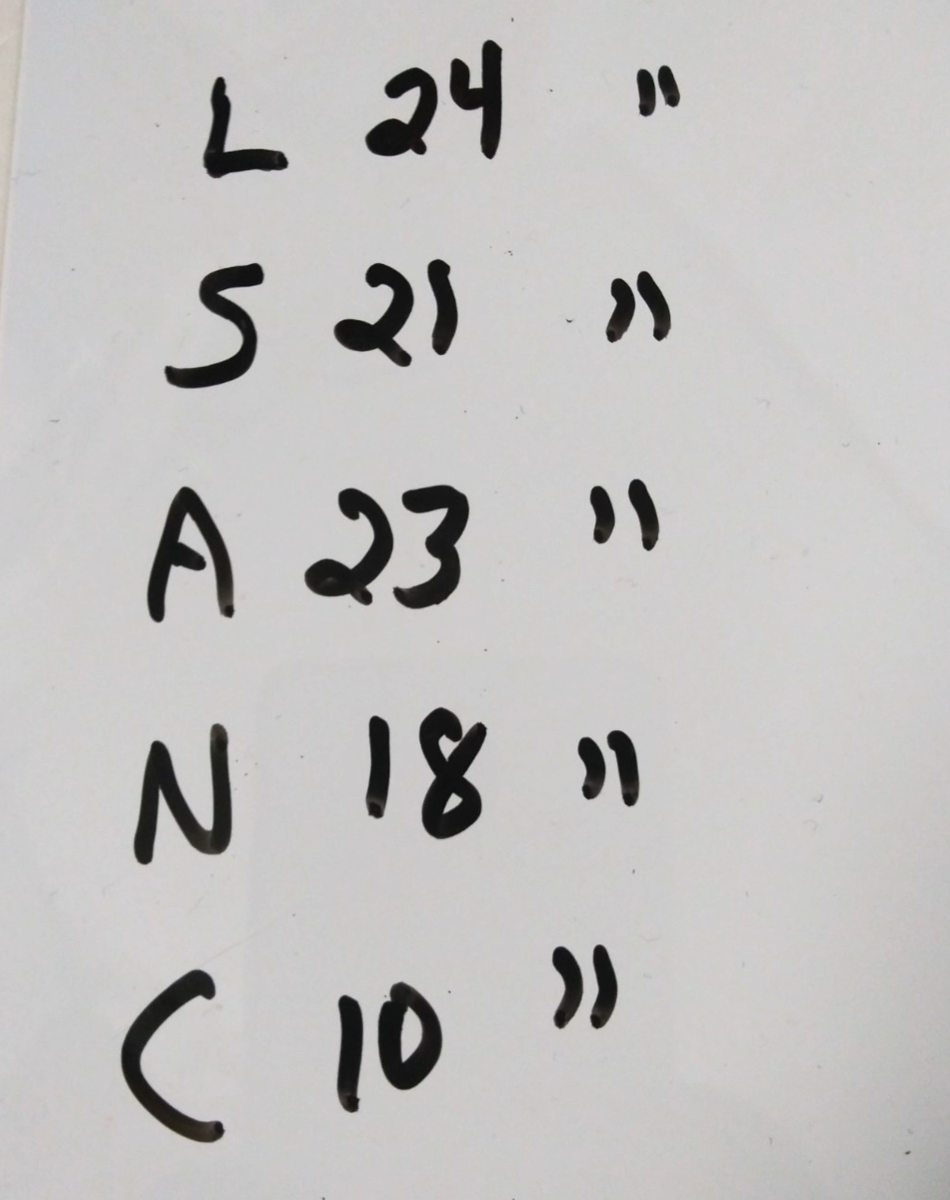 L 24 "
S 21 "
A 23 "
N 18 "
C 10 "